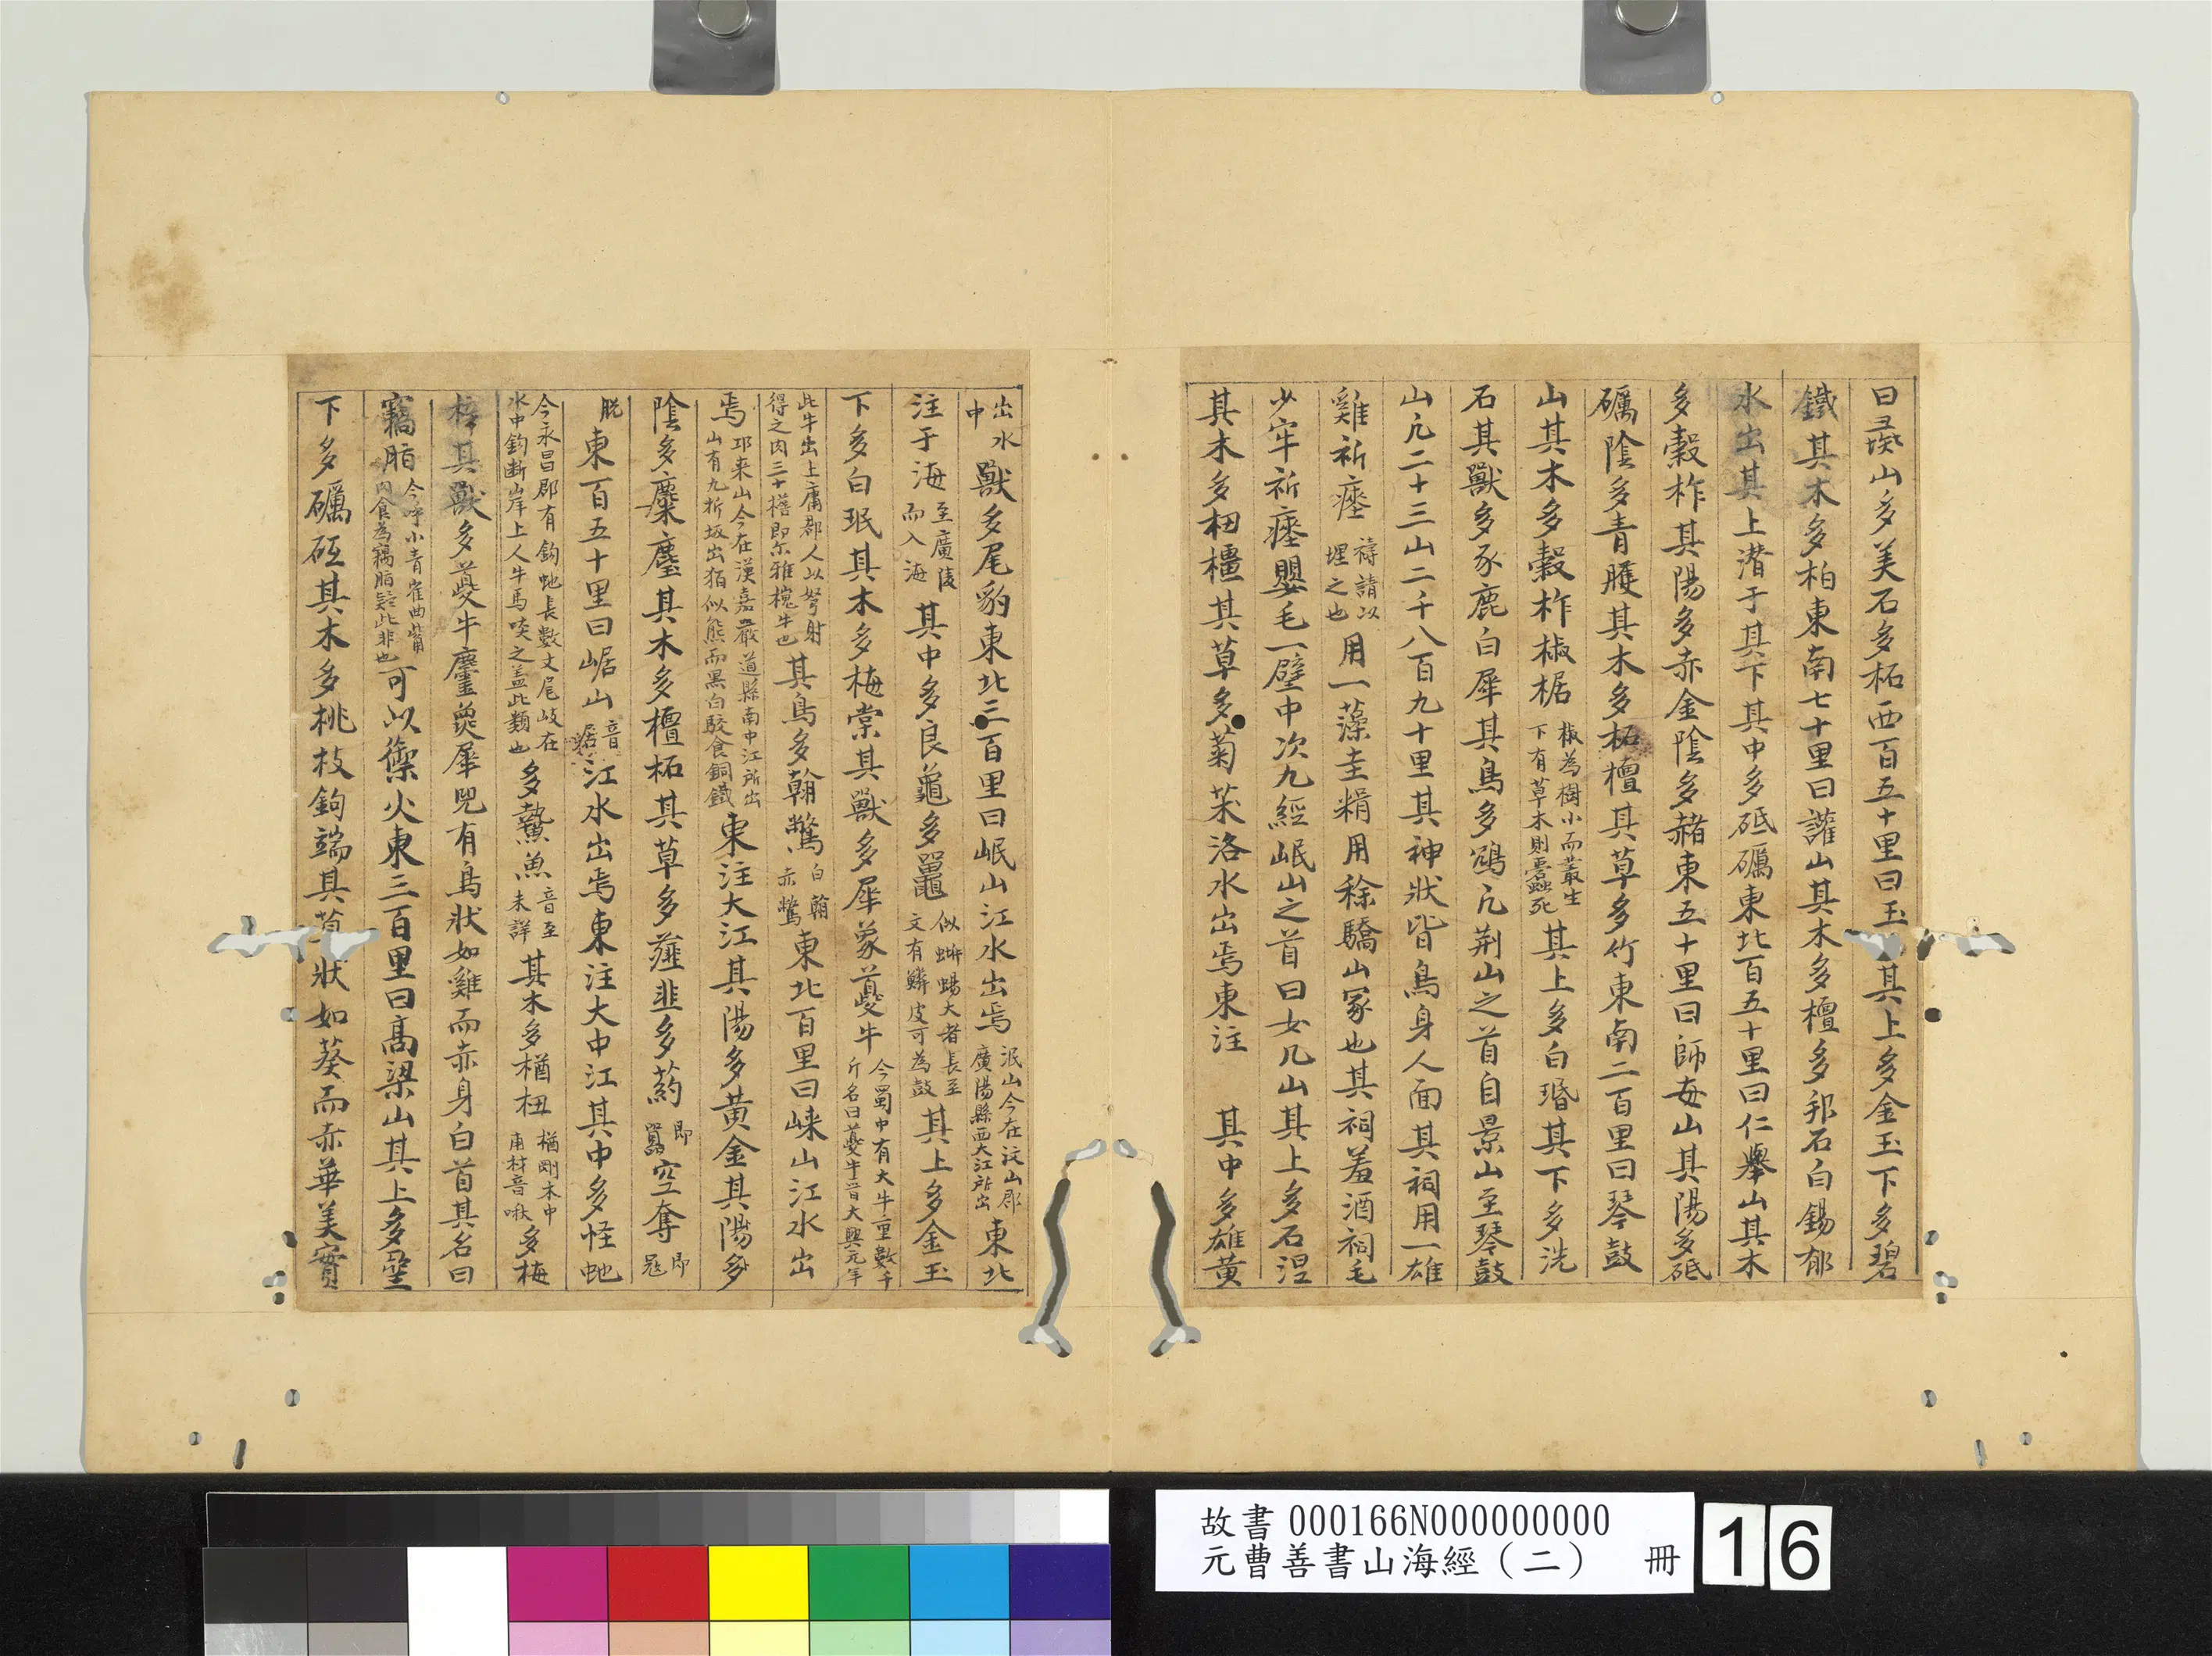 曰㻬山多美石多柘西百五十里曰玉其上多金玉下多碧
鐵其木多柏東南七十里曰讙山其木多檀多邽石白錫郁
水出其上潛于其下其中多砥礪東北百五十里曰仁舉山其木
多穀柞其陽多赤金陰多赭東五十里曰師每山其陽多砥
礪陰多青雘其木多柘檀其草多竹東南二百里曰琴鼓
山其木多穀柞椒椐椒為樹小而叢生下有草木則蠚死其上多白瑉其下多洗
石其獸多豕鹿白犀其鳥多鴆凢荆山之首自景山至琴鼓
山凢二十三山二千八百九十里其神狀皆鳥身人面其祠用一雄
雞祈瘞禱請以埋之也用一藻圭糈用稌驕山冢也其祠羞酒祠毛
少牢祈瘞嬰毛一璧中次九經岷山之首曰女几山其上多石涅
其木多杻橿其草多菊菜洛水出焉東注 其中多雄黄
出水中獸多尾豹東北三百里曰岷山江水出焉泯山今在汶山郡廣陽縣西大江所出東北
注于海至廣陵而入海其中多良龜多鼉似蜥蜴大者長至文有鱗皮可為鼓其上多金玉
下多白珉其木多梅棠其獸多犀象夔牛今蜀中有大牛重數千斤名曰夔牛晉大興元年
此牛出上庸郡人以弩射得之肉三十檐即尓雅槐牛也其鳥多翰鷩白翰赤鷩東北百里曰崍山江水出
焉邛来山今在漢嘉嚴道縣南中江所出山有九折坂出狛似熊而黑白駮食銅鐵東注大江其陽多黄金其陽多
陰多麋麈其木多檀柘其草多薤韭多葯即䖀空奪即冦
脫東百五十里曰崌山音居江水出焉東注大中江其中多怪虵
今永昌郡有鈎虵長數丈尾岐在水中鈎斷岸上人牛馬啖之盖此類也多鷙魚音至未詳其木多楢杻楢剛木中車材音啾多梅
梓其獸多夔牛麢㚟犀兕有鳥狀如雞而赤身白首其名曰
竊脂今呼小青雀曲觜肉食為竊脂疑此非也可以禦火東三百里曰高梁山其上多堊
下多礪砥其木多桃枝鉤端其草狀如葵而赤華美實
故書 000166N000000000
元曹善書山海經（二） 冊 16